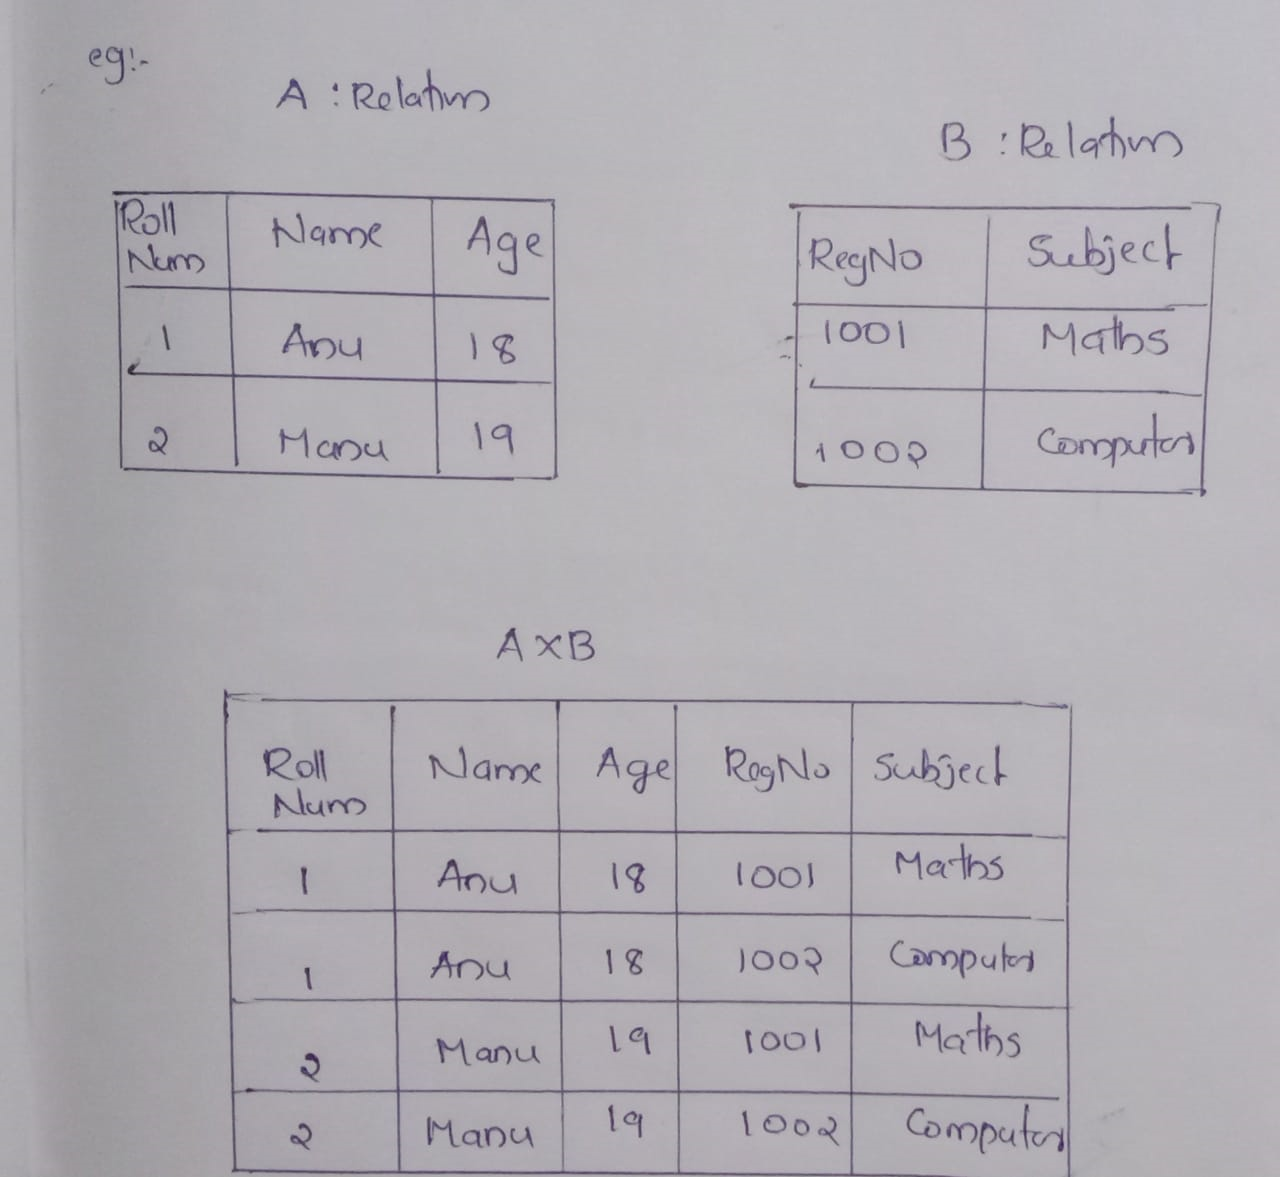 eg:-
A : Relation
B : Relation
Roll Num Name Age
1 Anu 18
2 Manu 19
RegNo Subject
1001 Maths
1002 Computer
A×B
Roll Num Name Age RegNo Subject
1 Anu 18 1001 Maths
1 Anu 18 1002 Computer
2 Manu 19 1001 Maths
2 Manu 19 1002 Computer